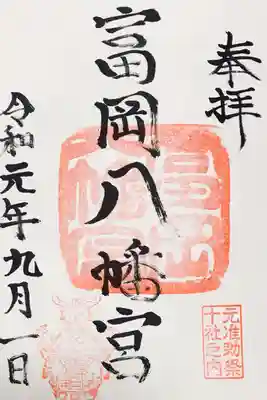 奉拝
富岡八幡宮
元准勅祭
十社之内
令和元年九月一日